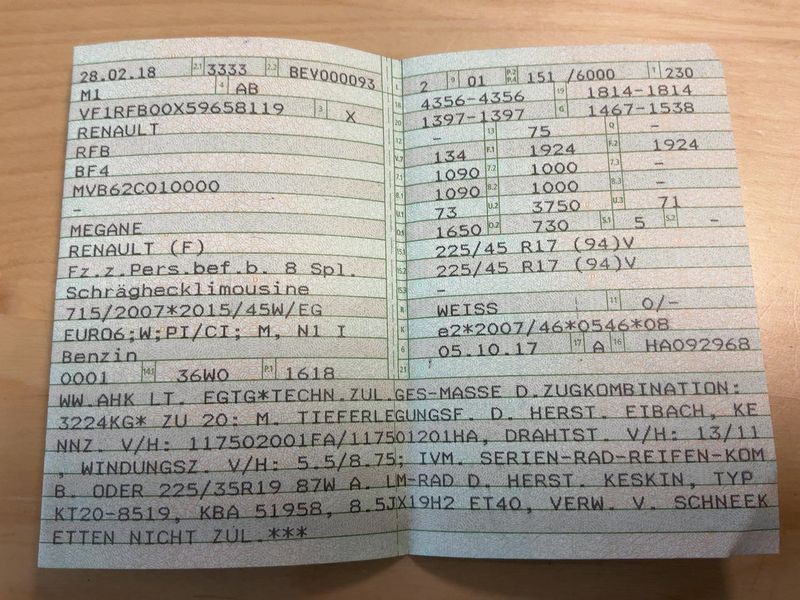 28.02.18 2.1 3333 2.2 BEV000093
M1 4 AB
VF1RFB00X59658119 3 X
RENAULT
RFB
BF4
MVB62C010000
-
MEGANE
RENAULT (F)
Fz.z.Pers.bef.b. 8 Spl.
Schräghecklimousine
715/2007*2015/45W/EG
EURO6;W;PI/CI; M, N1 I
Benzin
0001 14.1 36W0 P.1 1618
L 2 9 01 P.2 P.4 151 /6000 T 230
18 4356-4356 19 1814-1814
20 1397-1397 G 1467-1538
12 - 13 75 Q -
V.7 134 F.1 1924 F.2 1924
7.1 1090 7.2 1000 7.3 -
8.1 1090 8.2 1000 8.3 -
U.1 73 U.2 3750 U.3 71
O.1 1650 O.2 730 S.1 5 S.2 -
15.1 225/45 R17 (94)V
15.2 225/45 R17 (94)V
15.3 -
R WEISS 11 0/-
K e2*2007/46*0546*08
6 05.10.17 17 A 16 HA092968
21
WW.AHK LT. EGTG*TECHN.ZUL.GES-MASSE D.ZUGKOMBINATION:
3224KG* ZU 20: M. TIEFERLEGUNGSF. D. HERST. EIBACH, KE
NNZ. V/H: 117502001FA/117501201HA, DRAHTST. V/H: 13/11
, WINDUNGSZ. V/H: 5.5/8.75; IVM. SERIEN-RAD-REIFEN-KOM
B. ODER 225/35R19 87W A. LM-RAD D. HERST. KESKIN, TYP
KT20-8519, KBA 51958, 8.5JX19H2 ET40, VERW. V. SCHNEEK
ETTEN NICHT ZUL.***